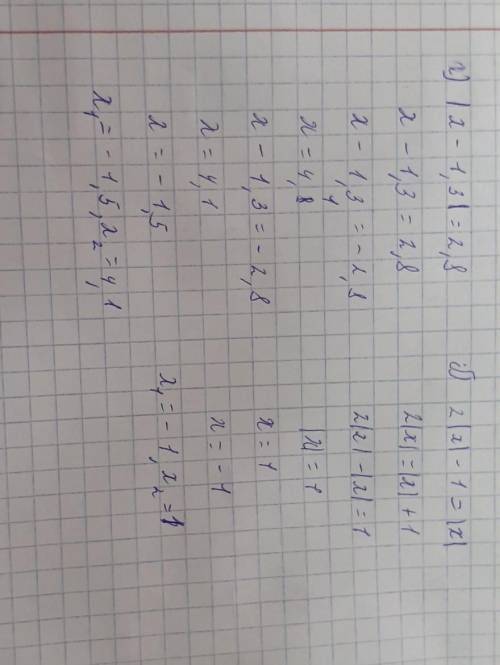 |x - 1,3| = 2,8
x - 1,3 = 2,8
x - 1,3 = -2,8
x = 4,8
x - 1,3 = -2,8
x = 4,1
x = -1,5
x₁ = -1,5, x₂ = 4,1
2|x| - 1 = |x|
2|x| = |x| + 1
2|x| - |x| = 1
|x| = 1
x = 1
x = -1
x₁ = -1, x₂ = 1